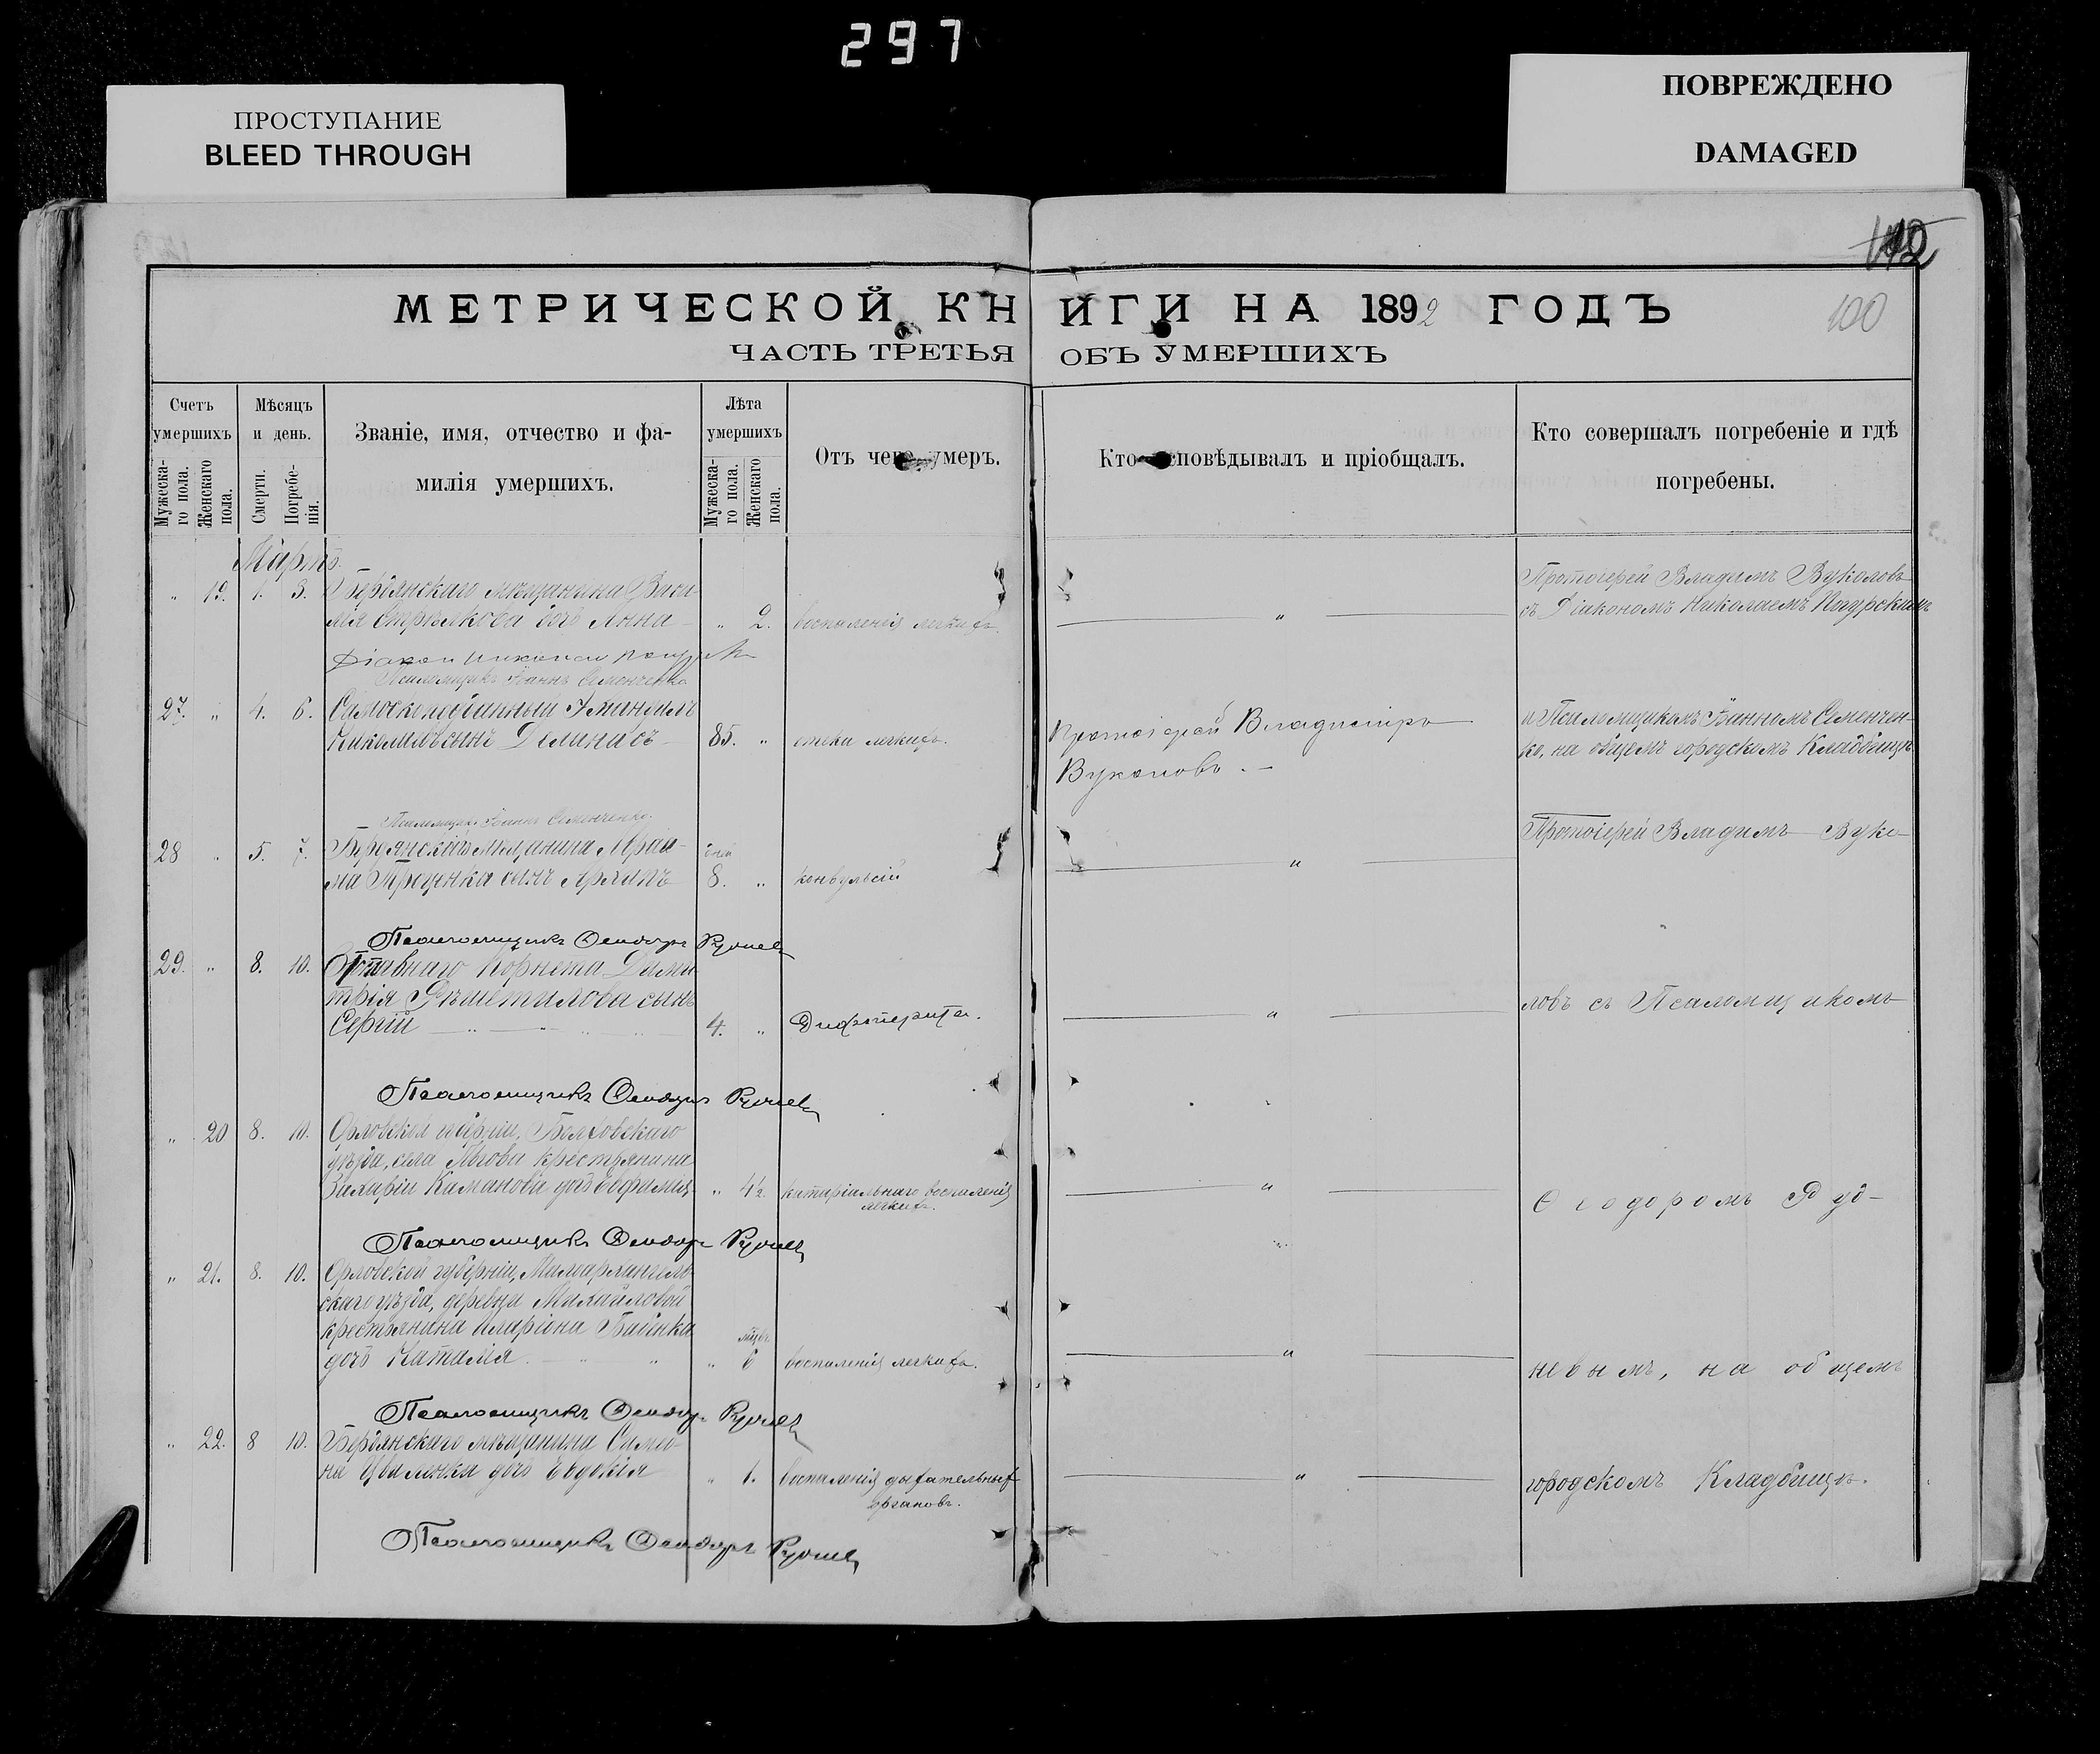 297
ПРОСТУПАНИЕ
BLEED THROUGH
ПОВРЕЖДЕНО
DAMAGED
100
МЕТРИЧЕСКОЙ КНИГИ НА 1892 ГОДЪ
ЧАСТЬ ТРЕТЬЯ ОБЪ УМЕРШИХЪ
Счетъ умершихъ
Мужеска-го пола.
Женскаго пола.
Мѣсяцъ и день.
Смерти.
Погребе-нія.
Званіе, имя, отчество и фа-
милія умершихъ.
Лѣта умершихъ
Мужеска-го пола.
Женскаго пола.
Отъ чего умеръ.
Кто исповѣдывалъ и пріобщалъ.
Кто совершалъ погребеніе и гдѣ
погребены.
Мартъ.
" 19. 1. 3. Бердянскаго мѣщанина Васи-
лія Стрѣлкова дочь Анна " 2. воспаленія легкихъ. "
Протоіерей Владимъ Вуколовъ
съ Діакономъ Николаемъ
Діаконъ Николай
Псаломщикъ Іоаннъ Семенченко
27. " 4. 6.
сынъ 85. " отека легкихъ.
Протоіерей Владиміръ
Вуколовъ.
и Псаломщикомъ Іоанномъ Семенчен-
ко, на общемъ городскомъ Кладбищѣ
Псаломщикъ Іоаннъ Семенченко.
28 " 5. 7. Бердянскаго мѣщанина
сынъ дней 8. " конвульсій "
Протоіерей Владимъ Вуко-
Псаломщикъ Феодоръ Руднев
29. " 8. 10. Отставнаго Корнета Дими-
трія Рѣшетилова сынъ
Сергій 4. " Дифтерита. "
ловъ съ Псаломщикомъ
Псаломщикъ Феодоръ Руднев
" 20 8. 10. Орловской губерніи, Болховскаго
уѣзда, села Льгова крестьянина
Захаріи Каманова дочь Евфимія " 4½ катаріальнаго воспаленія
легкихъ. "
Ѳеодоромъ Руд-
Псаломщикъ Феодоръ Руднев
" 21. 8. 10. Орловской губерніи, Малоархангель-
скаго уѣзда, деревни Михайловой
крестьянина Иларіона
дочь Наталія " мѣсяц 6 воспаленія легкихъ. "
невымъ, на общемъ
Псаломщикъ Феодоръ Руднев
" 22. 8 10. Бердянскаго мѣщанина Симо-
на дочь Евдокія " 1. воспаленія дыхательныхъ
органовъ. "
городскомъ Кладбищѣ.
Псаломщикъ Феодоръ Руднев